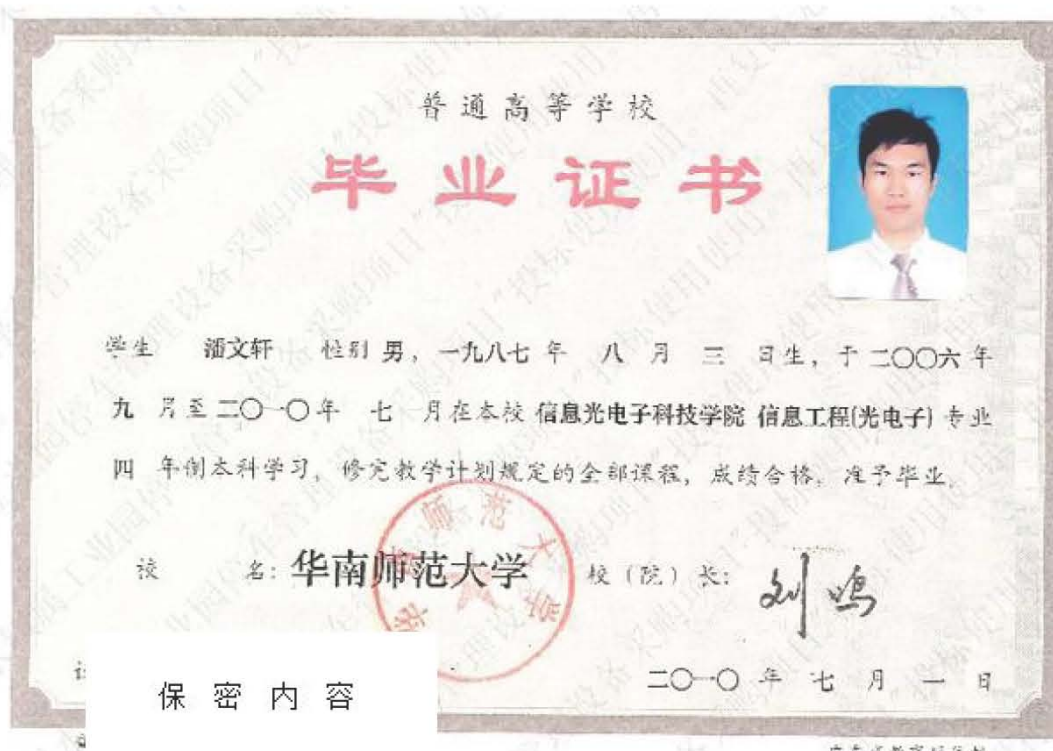 普通高等学校
毕业证书
学生 潘文轩 性别 男，一九八七 年 八 月 三 日生，于 二〇〇六 年
九 月至 二〇一〇 年 七 月在本校 信息光电子科技学院 信息工程(光电子) 专业
四 年制本科学习，修完教学计划规定的全部课程，成绩合格，准予毕业。
校 名：华南师范大学 校（院）长：刘鸣
华南师范大学
二〇一〇 年 七 月 一 日
保密内容